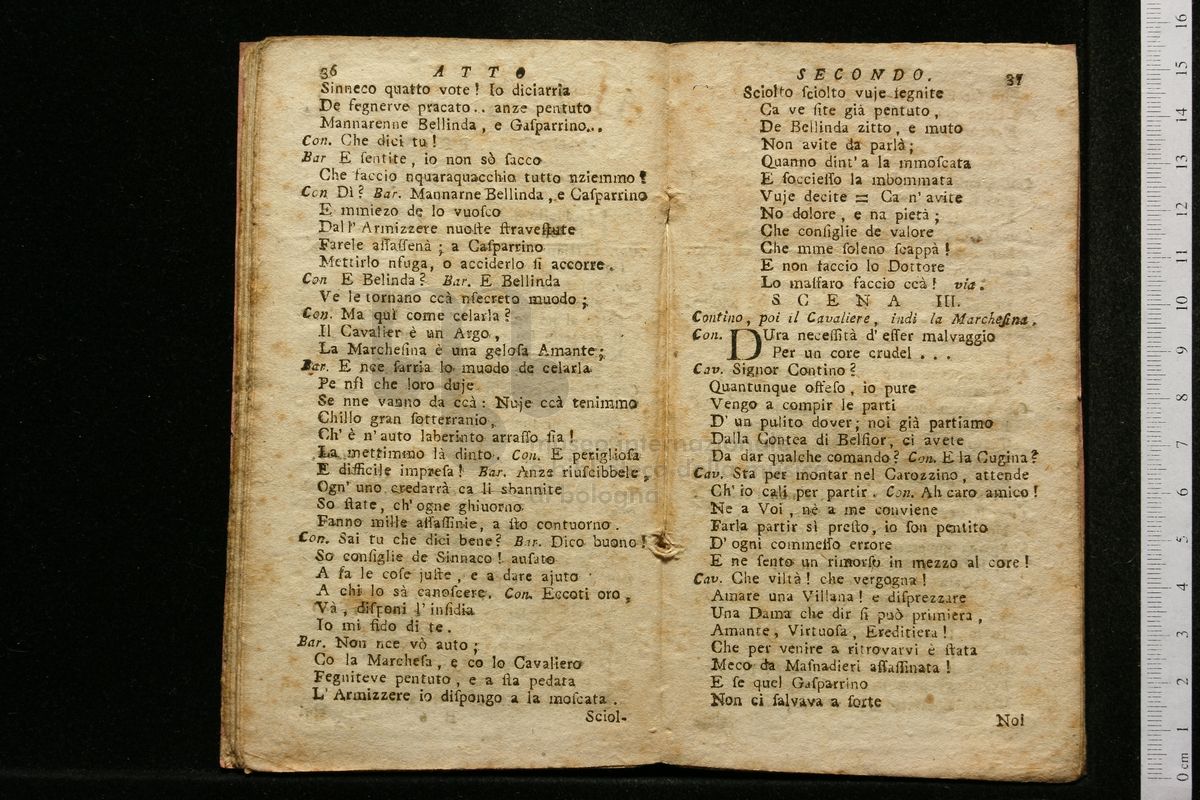 36 ATTO
Sinneco quatto vote! Io diciarria
De fegnerve pracato.. anze pentuto
Mannarenne Bellinda, e Gaſparrino...
Con. Che dici tu!
Bar E ſentite, io non sò ſacco
Che faccio nquaraquacchio tutto nziemmo!
Con Dì? Bar. Mannarne Bellinda, e Caſparrino
E mmiezo de lo vuoſco
Dall' Armizzere nuoſte ſtraveſtute
Farele aſſaſſenà; a Caſparrino
Mettirlo nfuga, o acciderlo ſi accorre.
Con E Belinda? Bar. E Bellinda
Ve le tornano ccà nſecreto muodo;
Con. Ma quì come celarla?
Il Cavalier è un Argo,
La Marcheſina è una geloſa Amante;
Bar. E nce ſarria lo muodo de celarla
Pe nſi che loro duje
Se nne vanno da ccà: Nuje ccà tenimmo
Chillo gran ſotterranio,
Ch' è n' auto laberinto arraſſo ſia!
La mettimmo là dinto. Con. E periglioſa
E difficile impreſa! Bar. Anze riuſcibbele,
Ogn' uno credarrà ca li sbannite
So ſtate, ch' ogne ghiuorno
Fanno mille aſſaſſinie, a ſto contuorno.
Con. Sai tu che dici bene? Bar. Dico buono!
So conſiglie de Sinnaco! auſato
A fa le coſe juſte, e a dare ajuto
A chi lo sà canoſcere. Con. Eccoti oro,
Va, diſponi l' inſidia
Io mi fido di te.
Bar. Non nce vò auto;
Co la Marcheſa, e co lo Cavaliero
Fegniteve pentuto, e a ſta pedata
L' Armizzere io diſpongo a la moſcata.
Sciol-
SECONDO. 37
Sciolto ſciolto vuje ſegnite
Ca ve ſite già pentuto,
De Bellinda zitto, e muto
Non avite da parlà;
Quanno dint' a la mmoſcata
E ſoccieſſo la mbommata
Vuje decite = Ca n' avite
No dolore, e na pietà;
Che conſiglie de valore
Che mme ſoleno ſcappà!
E non faccio lo Dottore
Lo maſſaro faccio ccà! via.
SCENA III.
Contino, poi il Cavaliere, indi la Marcheſina.
Con. DUra neceſſità d' eſſer malvaggio
Per un core crudel ...
Cav. Signor Contino?
Quantunque offeſo, io pure
Vengo a compir le parti
D' un pulito dover; noi già partiamo
Dalla Contea di Belfior, ci avete
Da dar qualche comando? Con. E la Cugina?
Cav. Sta per montar nel Carozzino, attende
Ch' io cali per partir. Con. Ah caro amico!
Ne a Voi, nè a me conviene
Farla partir sì preſto, io ſon pentito
D' ogni commeſſo errore
E ne ſento un rimorſo in mezzo al core!
Cav. Che viltà! che vergogna!
Amare una Villana! e diſprezzare
Una Dama che dir ſi può primiera,
Amante, Virtuoſa, Ereditiera!
Che per venire a ritrovarvi è ſtata
Meco da Maſnadieri aſſaſſinata!
E ſe quel Gaſparrino
Non ci ſalvava a ſorte
Noi